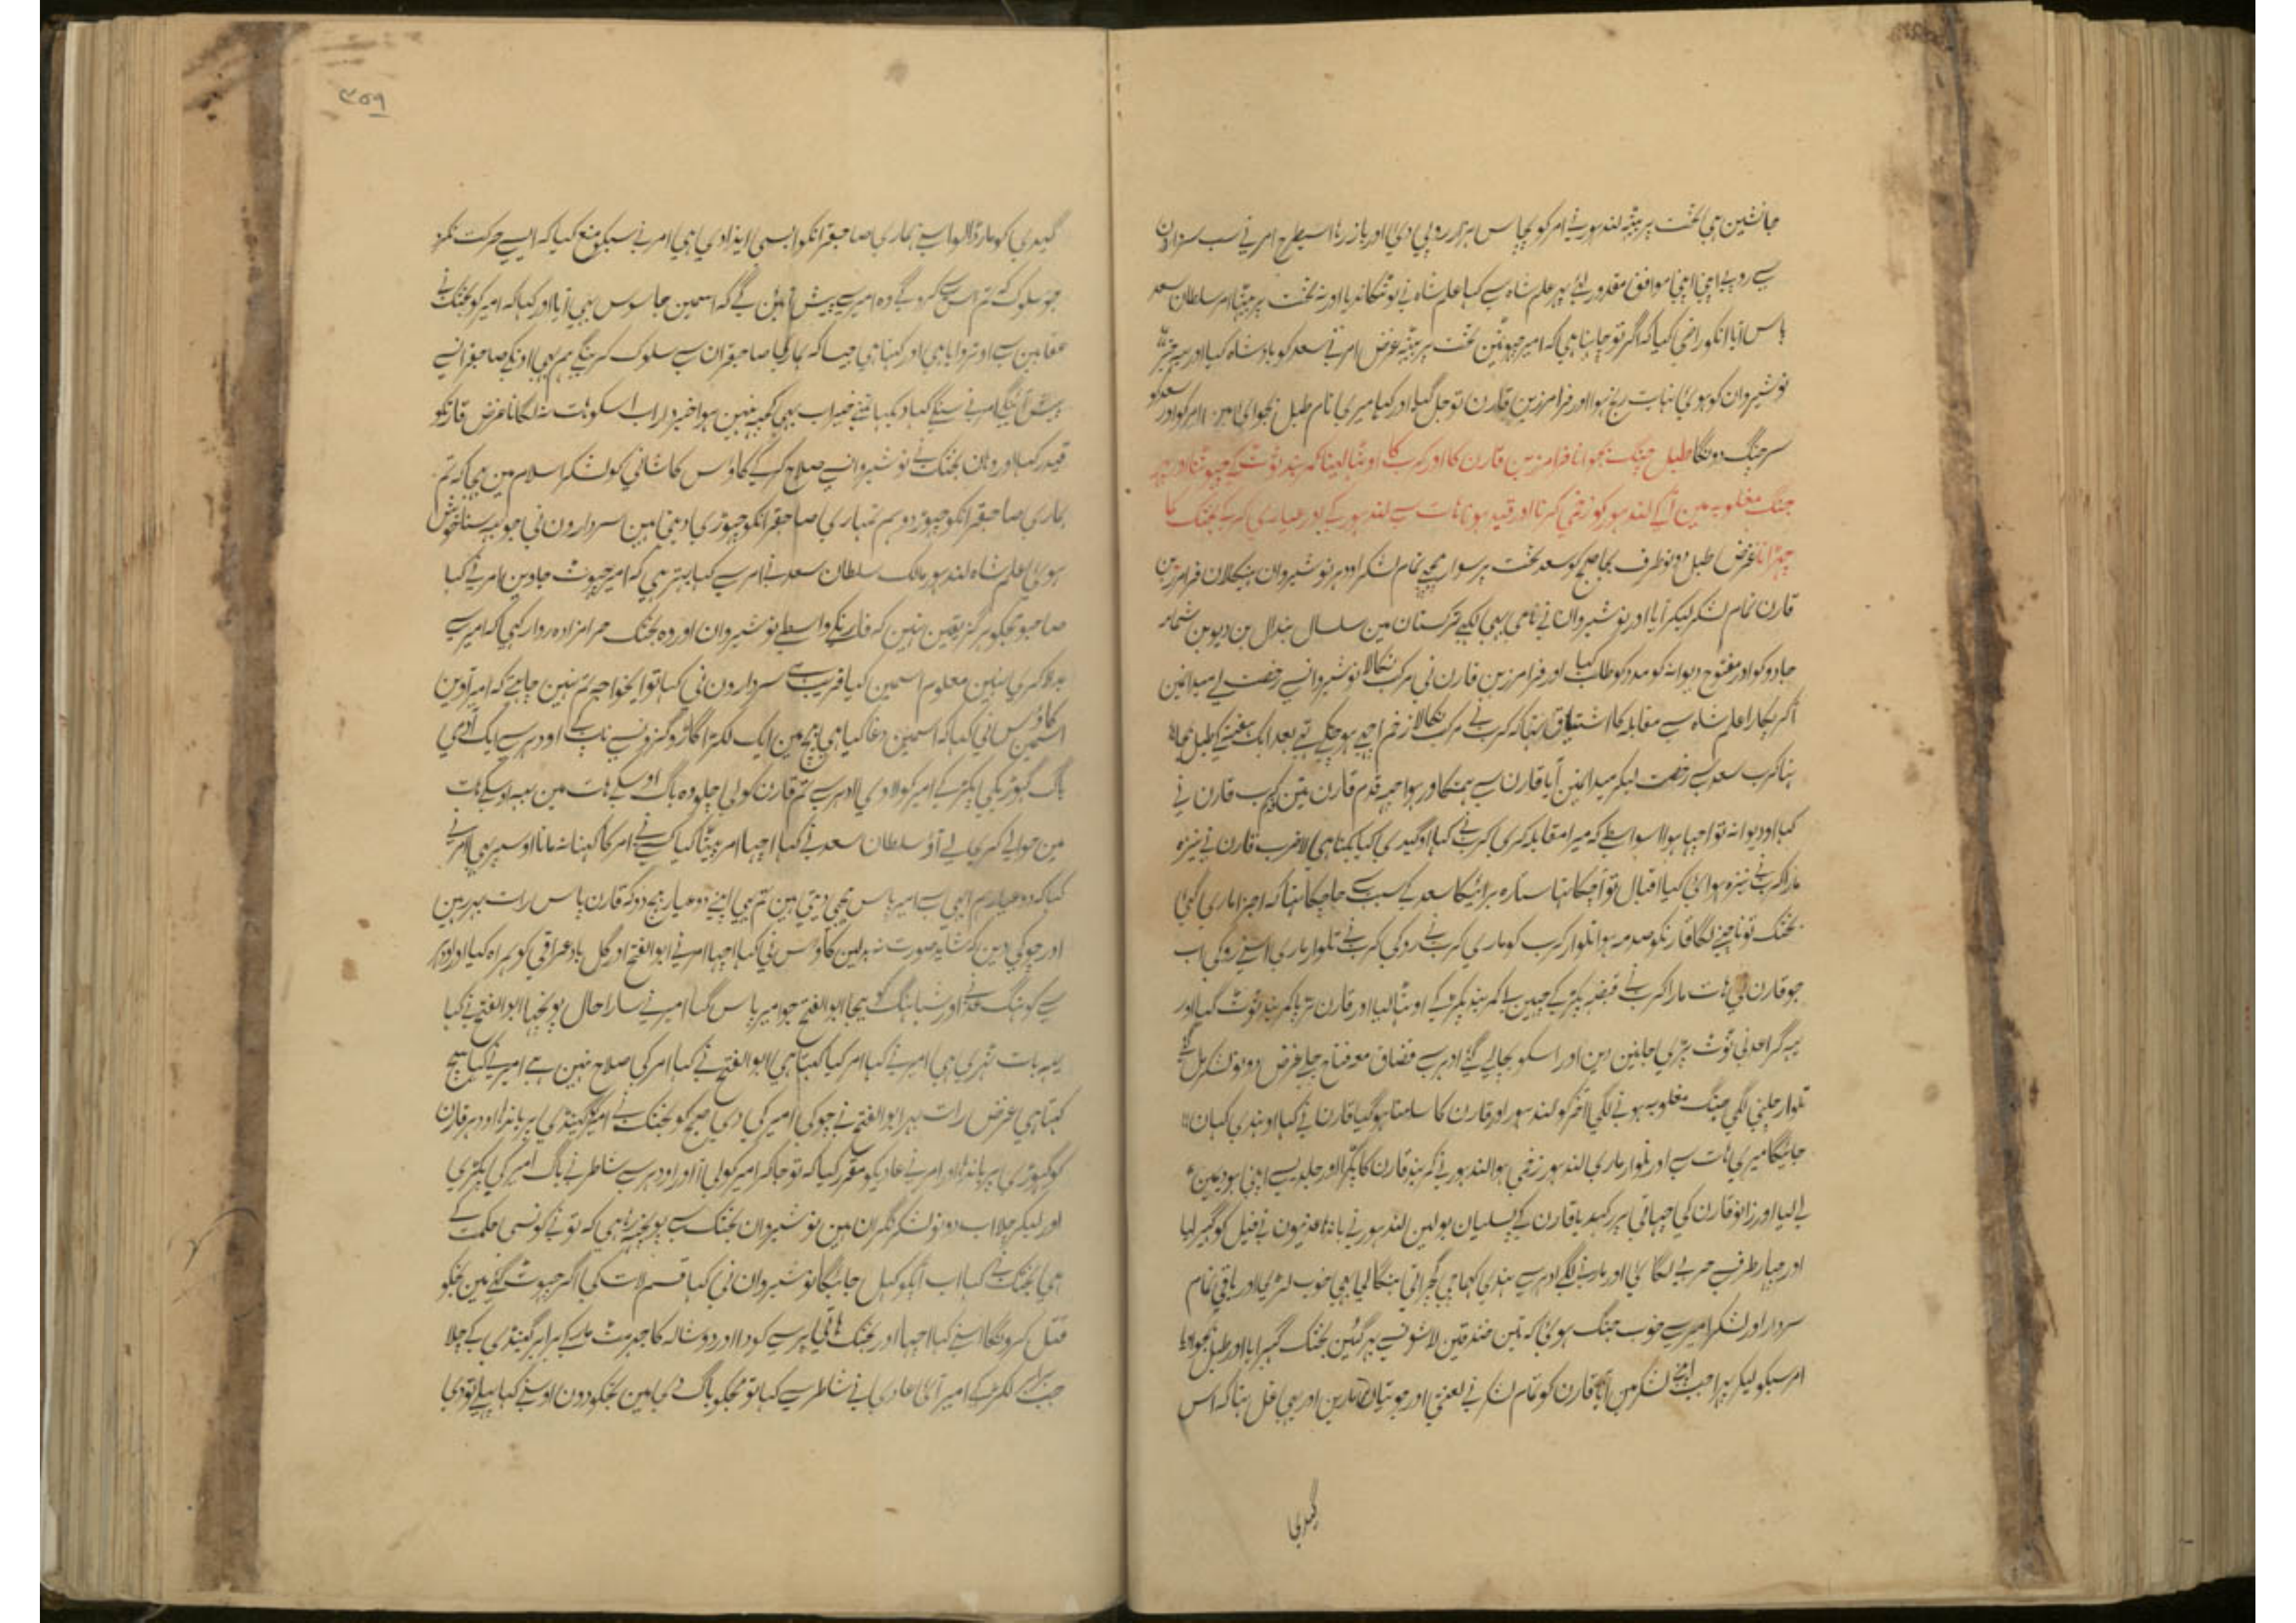 جانشین ہی تخت پر بیٹھہ لندہور نے امر کو پچاس ہزار روپی دی اور باز رہا اسیطرح امر نے سب سرداروں
سے روپے اپنی اپنی موافق مقدور لئے پہر علم شاہ سے کہا علم شاہ نے نوشتکاندیا اور نہ تخت پر بیٹھا امر سلطان سعد
پاس آیا انکو راضی کیا کہ اگر تو چاہتا ہی کہ امیر چہوٹین تخت پر بیٹھہ غرض امر نے سعد کو بادشاہ کیا اور یہ خبر
نوشیروان کو ہوئی نہایت رنج ہوا اور فرامرز بن قارن تو جل گیا اور کہا میری نام طبل بجوائی مین امر کو اور سعد کو
سر جنگ دونگا طبل جنگ بجوانا فرامرز بن قارن کا اور کرب کا اوٹہا لینا کمر بند ٹوٹ کے چہوٹنا اور پہر
جنگ مغلوبہ مین آکے لندہور کو زخمی کرنا اور قید ہونا ہات سے لندہور کے اور عیاری کرکے بختک کا
چہڑانا غرض طبل دونو طرف بجا صبح کو سعد تخت پر سوار پیچہے تمام لشکر اودہر نوشیروان ہیکلان فرامرز بن
قارن تمام لشکر لیکر آیا اور نوشیروان نے نامی بہی لکہے ترکستان مین سلسال بن دال بن دیو بن شمامہ
جادو کو اور مفتوح دیوانہ کو مدد کو طلب کیا اور فرامرز بن قارن نی مرکب نکالا نوشیروان سے رخصت لے میدانمین
آکر پکارا علم شاہ سے مقابلہ کا اشتیاق تہا کہ کرب نے مرکب نکالا زخم اچہے ہو چکے تہے بعد ایک ہفتہ کے طبل بجا تہا
تہا کرب سعد سے رخصت لیکر میدانمین آیا قارن سے ہمتکاور ہوا چہہ قدم قارن تین کرب قارن نے
کہا او دیوانہ تو اچہا ہوا اسواسطے کہ میرا مقابلہ کری کرب نے کہا او گیدی کیا بکتا ہی لا ضرب قارن نے نیزہ
مارا کرب نے نیزہ ہوائی کیا اقبال تو آچکا تہا ستارہ برائیکا سعد کے سبب سے جا چکا تہا کہ اجزا ماری گئی
بختک تو ناچنے لگا قارنکو صدمہ ہوا تلوار کرب کو ماری کرب نے روکی کرب نے تلوار ماری اسنے روکی اب
جو قارن نی ہات مارا کرب نے قبضہ پکڑ کے چہین لے کمر بند پکڑ کے اوٹہا لیا اور قارن تڑپا کمر بند ٹوٹ گیا اور
یہہ گرا عدنی ٹوٹ پڑی جانبین دین اور اسکو بچالے گئے ادہر سے قضاق معہ فتاح چلے غرض دونو لشکر مل گئے
تلوار چلنی لگی جنگ مغلوبہ ہونے لگی آخر کو لندہور اور قارن کا سامنا ہو گیا قارن نے کہا او ہندی کہان
جائیگا میری ہات سے اور تلوار ماری لندہور زخمی ہوا لندہور نے کمر بند قارن کا پکڑا اور جلدیسے اپنی ہودیمین
لے لیا اور زانو قارن کی چہاتی پر رکہدیا قارن کے پسلیان بولین لندہور نے باندہا عدنیون نے فیل کو گہیر لیا
اور چہار طرف حربے لگائی اور مارنے لگے ادہر سے ہندی کہا ہی گجراتی بنگالی بہی خوب لڑی اور باقی تمام
سردار اور لشکر امیر سے خوب جنگ ہوئی کہ تین خندقین لاشونسے بہر گئین بختک گہبرایا اور طبل بجوایا
امر سبکو لیکر پہرا جب اپنے لشکر مین آیا قارن کو تمام لشکر نے لعنتی اور جوتیان مارین اور یہی غل تہا کہ اس
گیدی
۳۵۹
گیدی کو مار ڈالو اسنے ہماری صاحبقرانکو ایسی ایذا دی ہی امر نے سبکو منع کیا کہ ایسے حرکت نکرو
جو سلوک کہ تم اس سے کروگے وہ امیر سے پیش آئین گے کہ اسمین جاسوس بہی آیا اور کہا کہ امیر کو بختک نے
عقابین سے اوتروایا ہی اور کہتا ہی جیسا کہ ہماریکا صاحبقران سے سلوک کرینگے ہم بہی اونکے صاحبقرانسے
پیش آئینگے امر نے سینگے کہا دیکہا تمنے خیر اب بہی کچہہ نہین ہوا خبردار اب اسکو ہات نہ لگانا غرض قارنکو
قید کیا اور وہان بختک نے نوشیروانسے صلاح کرکے کاوس کاشانی کو لشکر اسلام مین بہیجا کہ تم
ہماری صاحبقرانکو چہوڑ دو ہم تمہاری صاحبقرانکو چہوڑی دیتی ہین سردارون نی جو یہہ سنا خوش
ہوئی اعلم شاہ لندہور مالک سلطان سعد نے امر سے کہا بہتر ہی کہ امیر چہوٹ جاوین امر نے کہا
صاحبو مجکو ہرگز یقین نہین کہ قارنکے واسطے نوشیروان اور وہ بختک حرامزادہ روا رکہی کہ امیر سے
بدلا کری نہین معلوم اسمین کیا فریب ہے سردارون نی کہا تو ای خواجہ تم نہین چاہتے کہ امیر آوین
کاوس نی کہا کہ اسمین دغا کیا ہی بیچ مین ایک لکڑا گاڑو گزونسے ناپ کے اودہر سے ایک آدمی
باگ گہوڑیکی پکڑ کے امیر کو لادی ادہر سے تم قارن کو لی چلو وہ باگ اوسکے ہات مین یہہ اوسکے ہات
مین حوالے کرکے لے آؤ سلطان سعد نے کہا اچہا امر بیٹہا کیا کسے نے امر کا کہنا نہ مانا اوسپر بہی امر نے
کہا کہ دو عیار ہم اپنی سے امیر پاس بہیجی دیتی ہین تم بہی اپنے دو عیار بہیجدو کہ قارن پاس رات بہر رہین
اور چوکی دین کہ شاید صورت نہ بدلین کاوس نی کہا اچہا امر نے ابوالفتح اور گل باد عراقی کو ہمراہ کیا اور اودہر
سے کوہنگ قد نے اور شباہنگ کو بہیجا ابوالفتح جو امیر پاس گیا امیر نے سارا حال پوچہا ابوالفتح نے کہا
یہہ بات ٹہری ہی امیر نے کہا امر کیا کہتا ہی ابوالفتح نے کہا امر کی صلاح نہین ہے امیر نے کہا سچ
کہتا ہی غرض رات بہر ابوالفتح نے چوکی امیر کی دی صبح کو بختک نے امیر کو گینڈی پر باندہا اودہر قارن
کو گہوڑی پر باندہا اور امر نے عادیکو مقرر کیا کہ تو جا کر امیر کو لی آ اور اودہر سے شاطر نے باگ امیر کی پکڑی
اور لیکر چلا اب دونو لشکر نگران ہین نوشیروان بختک سے پوچہتا ہی کہ تونے کونسی حکمت کے
ہی بختک نے کہا اب آپکو کہل جائیگا نوشیروان نی کہا قسم لات کی اگر چہوٹ گئے مین تجکو
قتل کرونگا اسنے کہا اچہا اور بختک ہاتی پر سے کودا اور دوشالہ کا جہرمٹ مار کے برابر گینڈی کے چلا
جب برابر لکڑی کے امیر آئی عادی نے شاطر سے کہا تو مجکو باگ دی مین تجکو دون اوسنے کہا پہلے تو دی